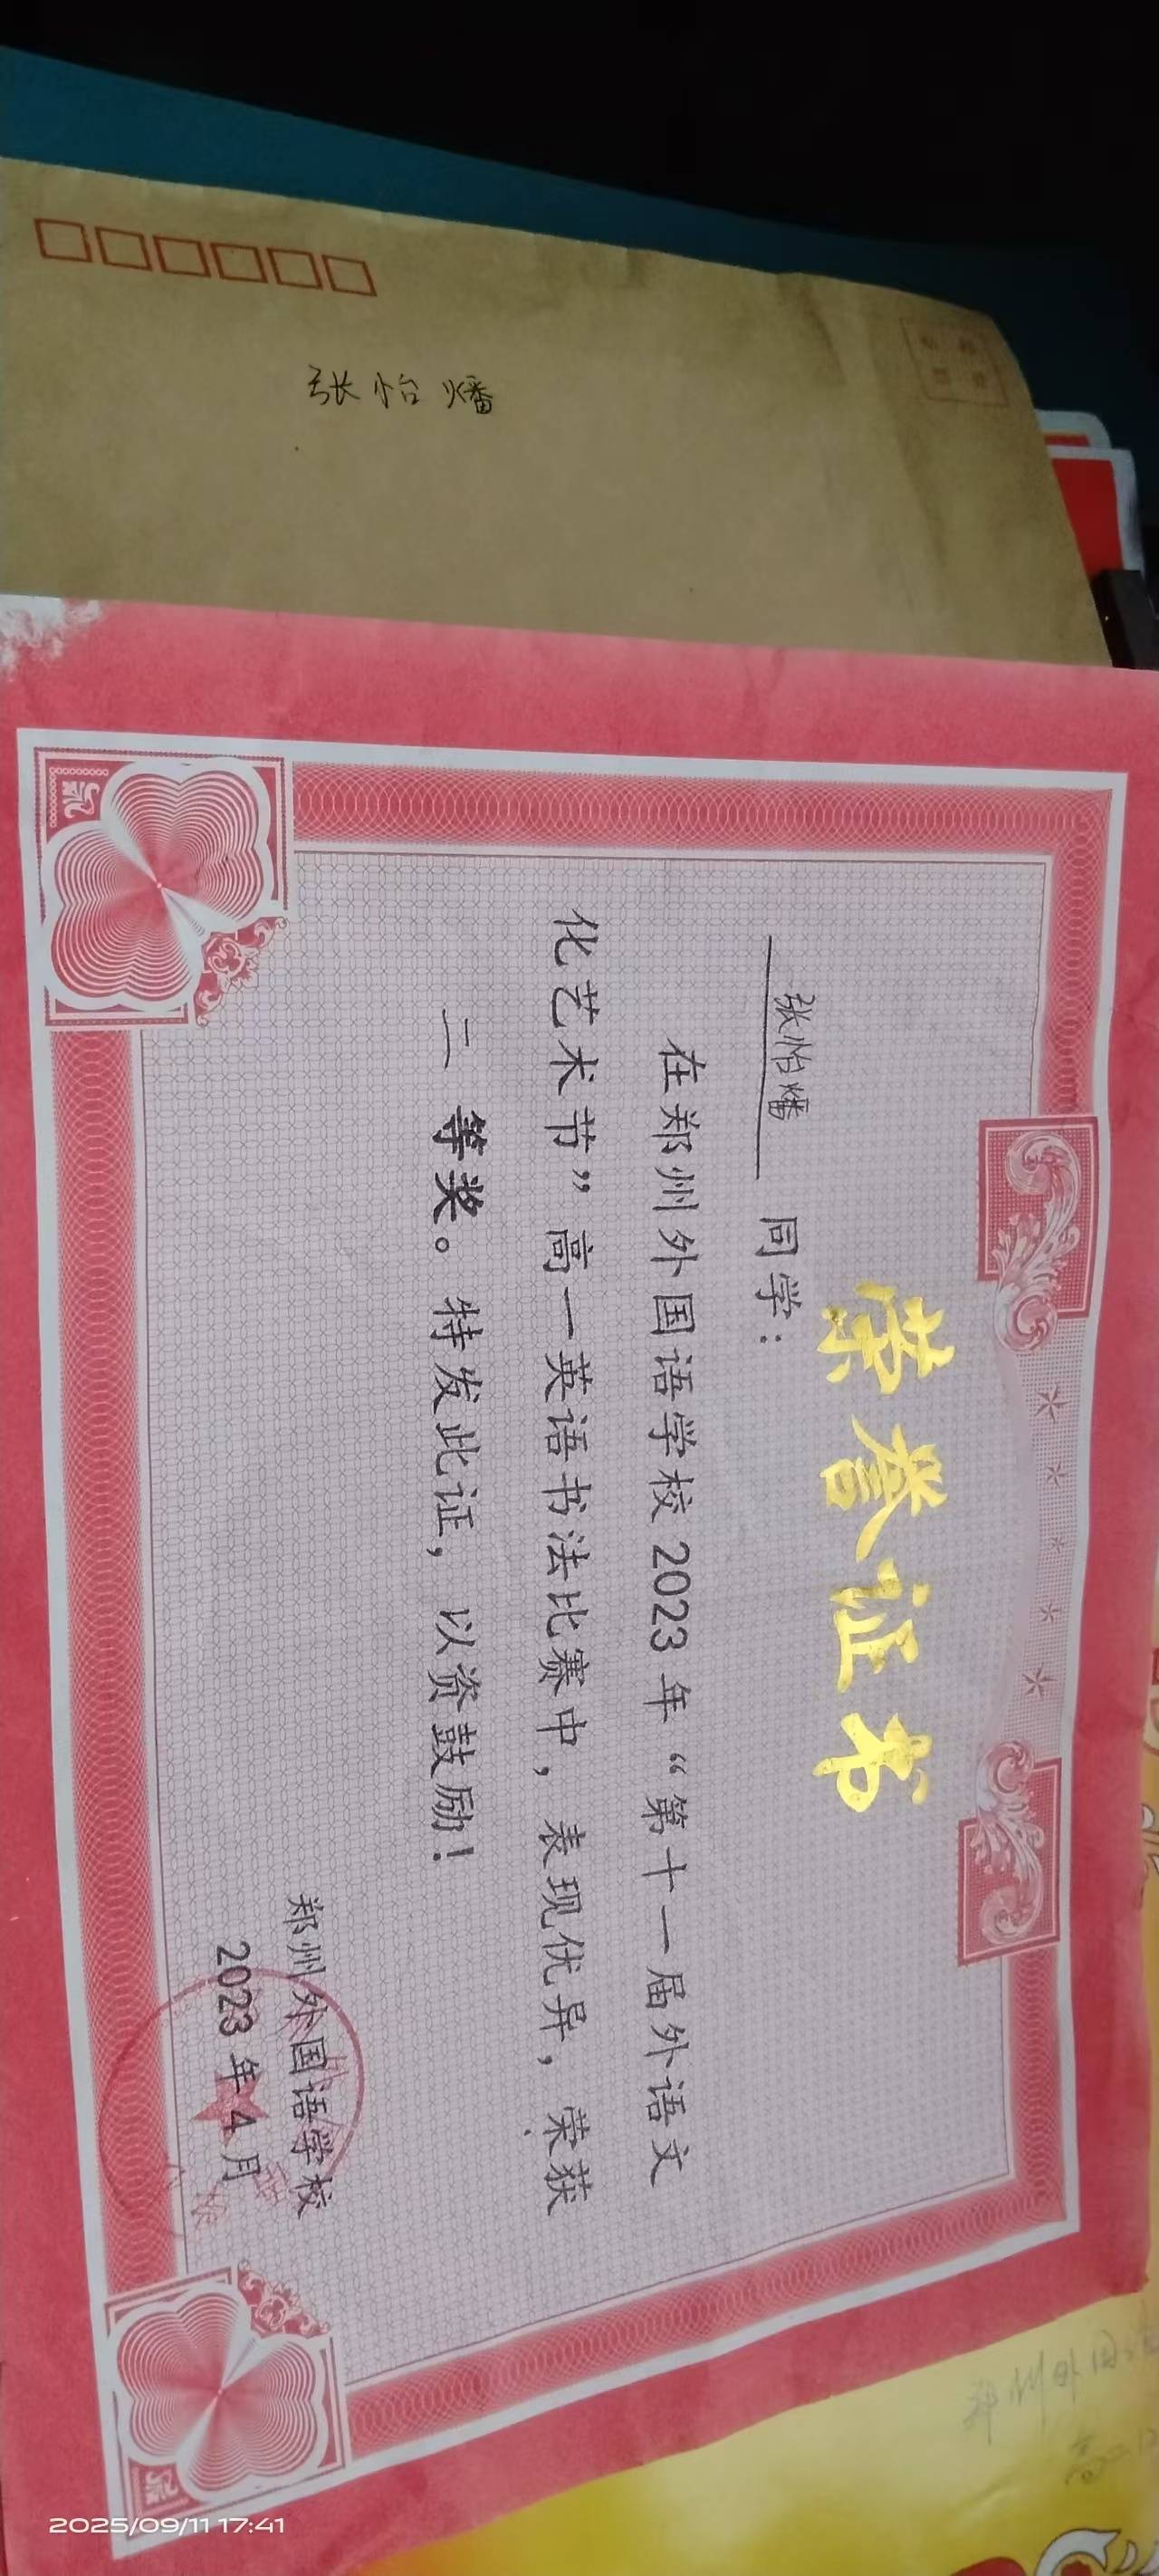 张怡燔
荣誉证书
张怡燔 同学：
在郑州外国语学校 2023 年“第十一届外语文
化艺术节”高一英语书法比赛中，表现优异，荣获
二 等奖。特发此证，以资鼓励！
郑州外国语学校
2023 年 4 月
郑州外国语
高一
2025/09/11 17:41